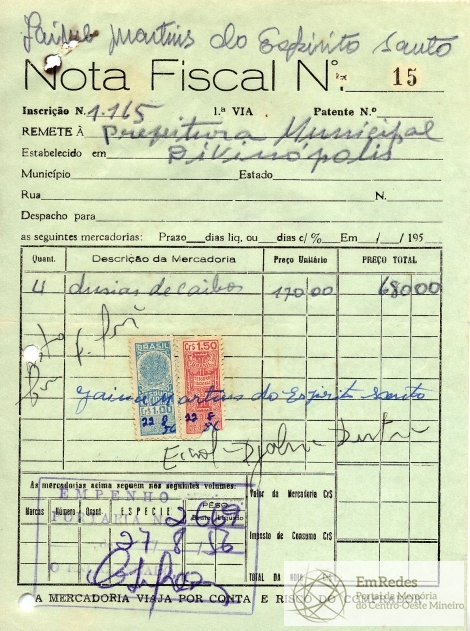 Martins do Espirito Santo
Nota Fiscal Nº. 15
Inscrição N. 1.165 1.ª VIA Patente N.º
REMETE À Prefeitura Municipal
Estabelecido em Divinópolis
Município Estado
Rua N.
Despacho para
as seguintes mercadorias: Prazo dias liq, ou dias c/ % Em / / 195
Quant. Descrição da Mercadoria Preço Unitário PREÇO TOTAL
4 dusias de caibos 170 00 680 00
BRASIL Cr$ 1,50
Cr$ 1,00
22 8 56 22 8 56
Martins do Espirito Santo
As mercadorias acima seguem nos seguintes volumes:
EMPENHO
PORTARIA N.
Marcas Número Quant. ESPECIE PESO
Bruto Líquido
27 8 56
Valor da Mercadoria Cr$
Imposto de Consumo Cr$
TOTAL DA NOTA Cr$
A MERCADORIA VIAJA POR CONTA E RISCO DO COMPRADOR
EmRedes
Portal da Memória
do Centro-Oeste Mineiro